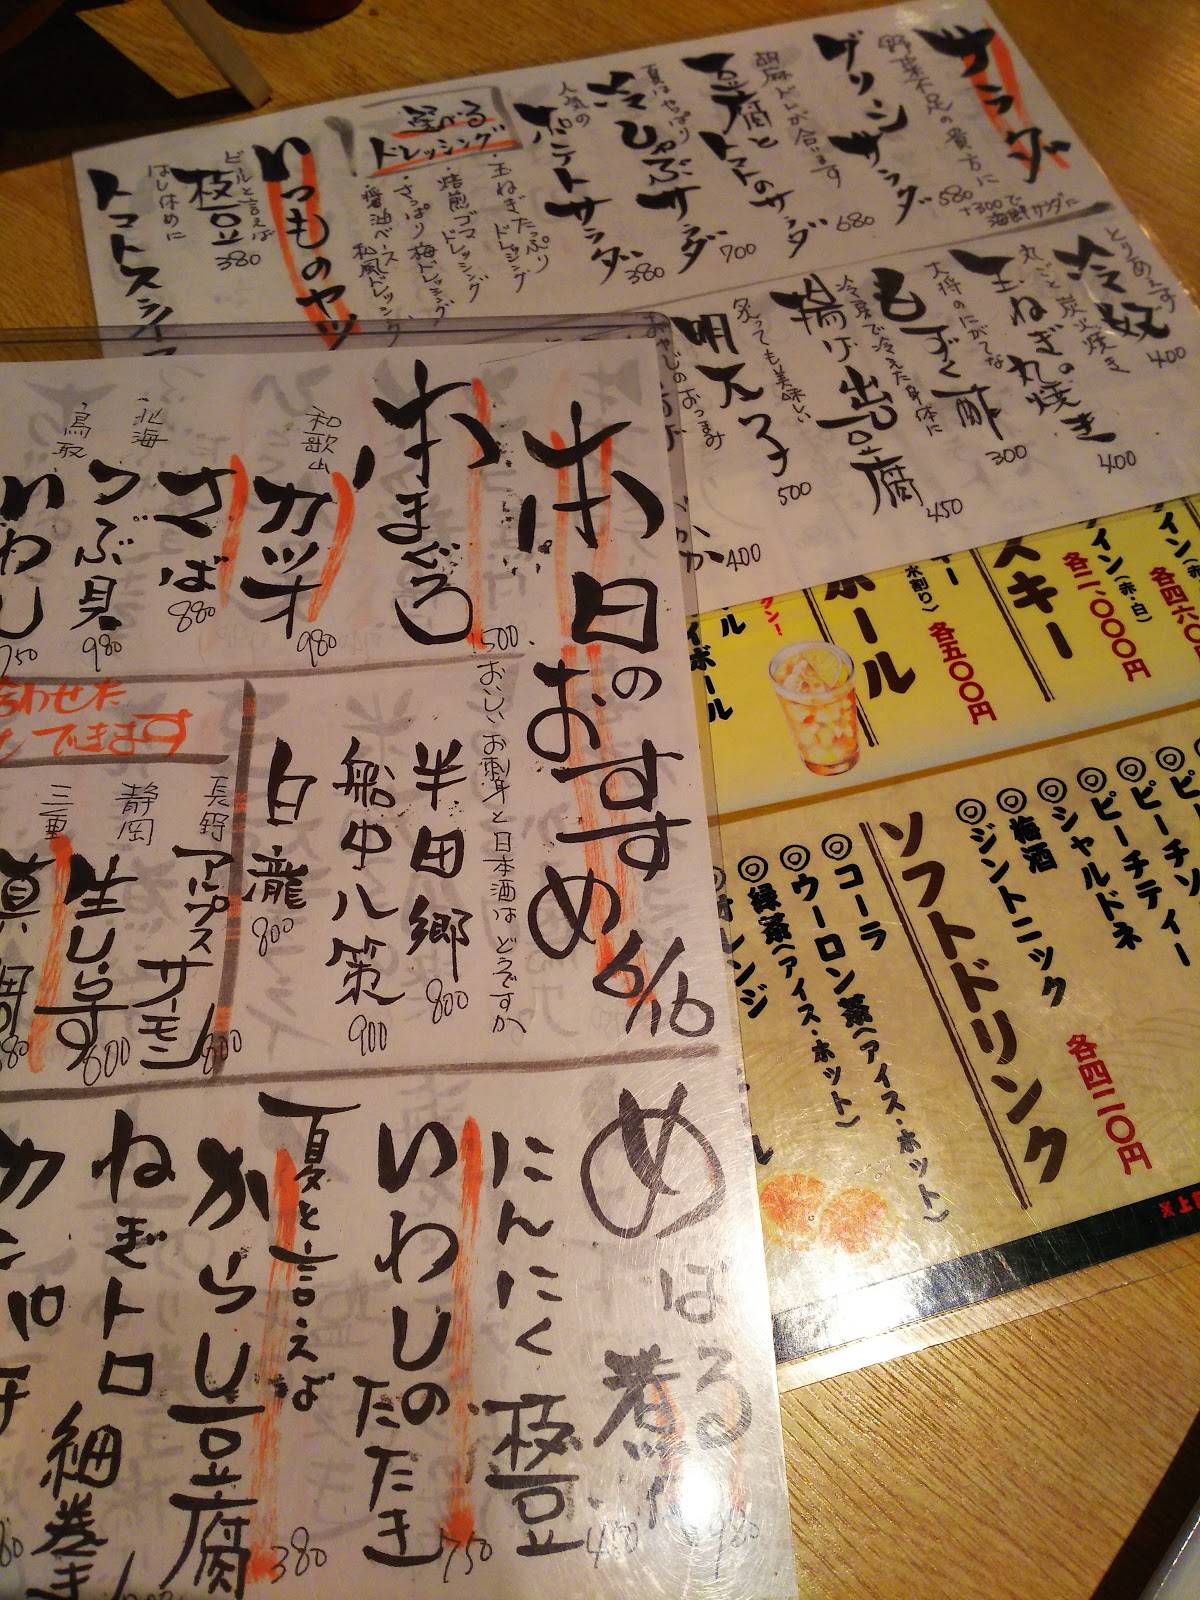 サラダ
野菜不足の貴方に
グリーンサラダ
580
+300で
海鮮サラダに
680
胡麻ドレが合います
豆腐とトマトのサラダ
700
夏はやっぱり
冷しゃぶサラダ
人気の
ポテトサラダ
380
選べる
ドレッシング
・玉ねぎたっぷり
ドレッシング
・焙煎ゴマ
ドレッシング
・さっぱり梅ドレッシング
・醤油ベース
和風ドレッシング
いつものヤツ
ビールと言えば
枝豆
380
はし休めに
トマトスライス
とりあえず
冷奴
400
丸ごと炭火焼き
玉ねぎの丸焼き
400
大将のにがてな
もずく酢
300
冷房で冷えた身体に
揚げ出豆腐
450
炙っても美味しい
明太子
500
おやじのおつまみ
400
本日のおすすめ 6/16
おいしいお刺身と日本酒はどうですか
半田郷
800
船中八策
900
白瀧
800
本まぐろ
1,500
和歌山
カツオ
980
さば
880
北海
つぶ貝
980
鳥取
いわし
750
合わせた
できます
長野
アルプスサーモン
800
静岡
生しらす
600
三重
真鯛
めばる煮付
980
にんにく枝豆
450
いわしのたたき
750
夏と言えば
からし豆腐
380
ねぎトロ細巻き
スキー
各二、〇〇〇円
イン(赤・白)
各四六〇円
ボール
水割り)
各五〇〇円
◎ピーチティー
◎ピーチネ
◎シャルドネ
◎梅酒
◎ジントニック
ソフトドリンク
各四二〇円
◎コーラ
◎ウーロン茶(アイス・ホット)
◎緑茶(アイス・ホット)